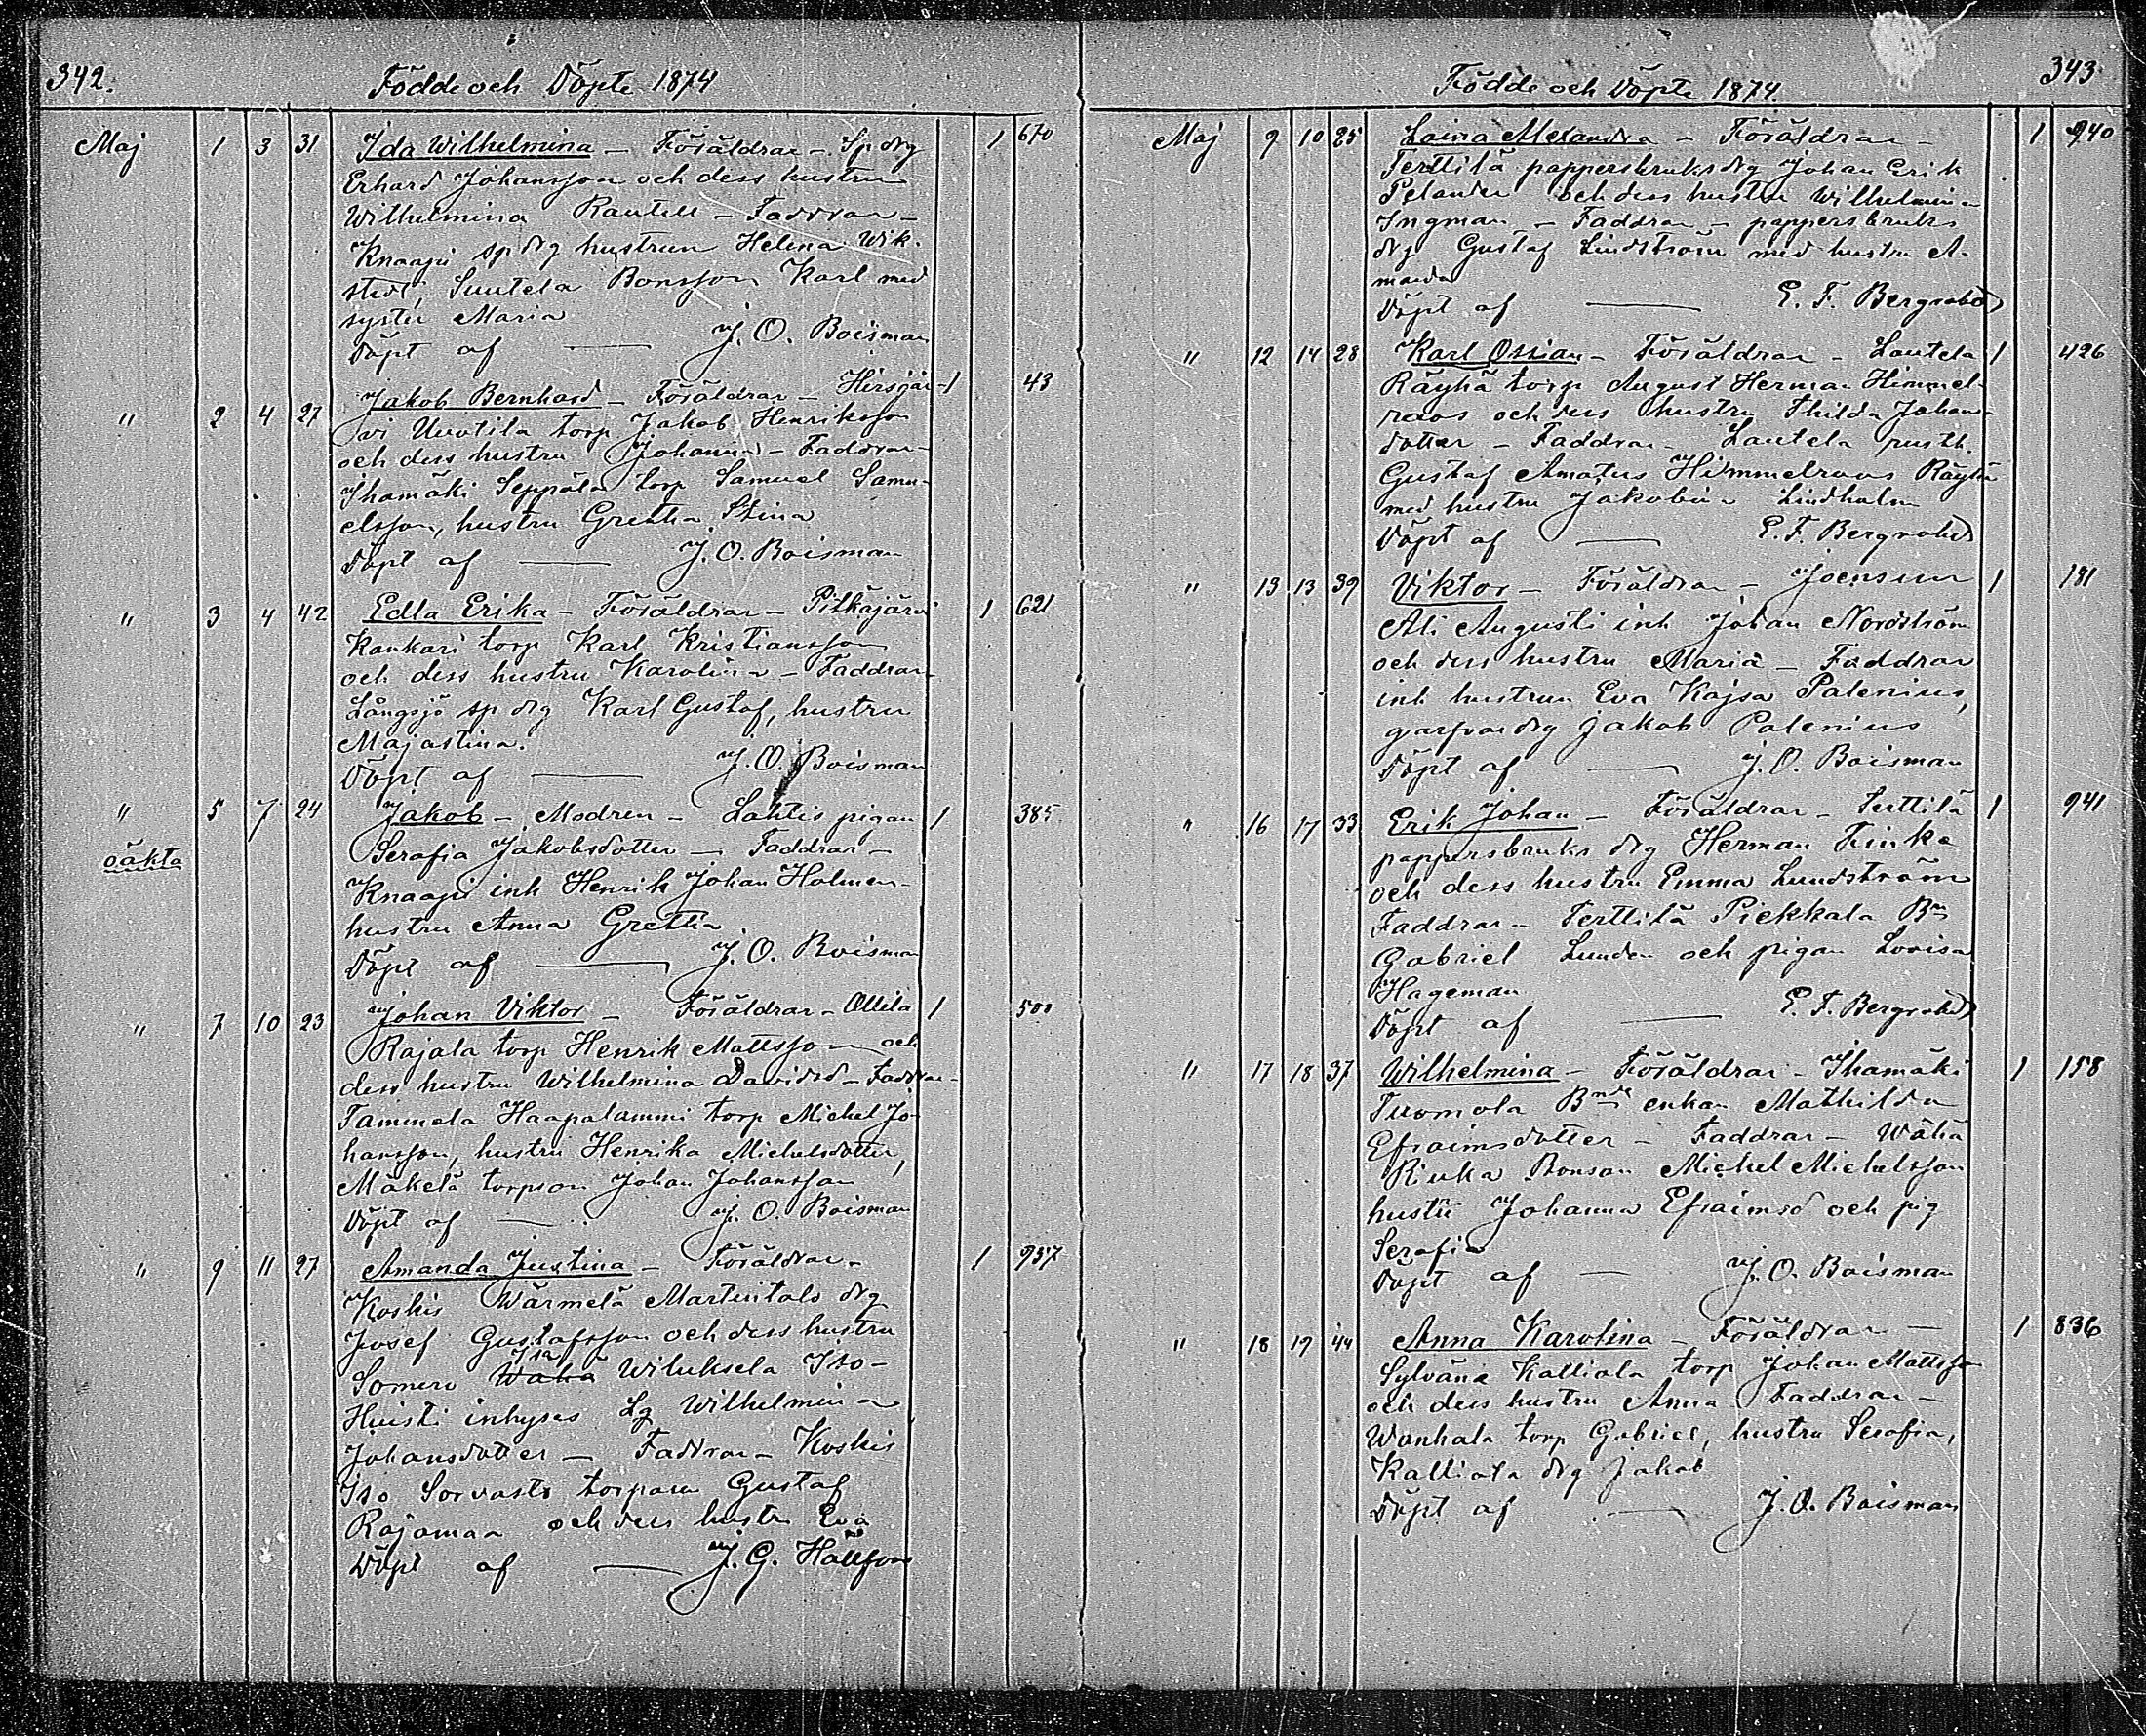 342.
Födde och Döpte 1874
Maj 1 3 31 Ida Wilhelmina – Föräldrar – Sp drg 1 670
Erhard Johansson och dess hustru
Wilhelmina Rautell – Faddrar –
Knaapi sp drg hustrun Helena Wik-
stedt, Suutela Bonsson Karl med
syster Maria
Döpt af — J. O. Boisman
" 2 4 27 Jakob Bernhard – Föräldrar – Hirsjär- 1 43
vi Uvotila torp Jakob Henriksson
och dess hustru Johanna – Faddrar –
Ihamäki Seppälä torp Samuel Samu-
elsson, hustru Gretha Stina
Döpt af — J. O. Boisman
" 3 4 42 Edla Erika – Föräldrar – Pitkäjärvi 1 621
Kankari torp Karl Kristiansson
och dess hustru Karolina – Faddrar –
Långsjö sp drg Karl Gustaf, hustru
Majastina.
Döpt af — J. O. Boisman
" 5 7 24 Jakob – Modren – Lahtis pigan 1 385
oäkta Serafia Jakobsdotter – Faddrar –
Knaapi inh Henrik Johan Holmen
hustru Anna Gretha
Döpt af — J. O. Boisman
" 7 10 23 Johan Viktor – Föräldrar – Ollila 1 500
Rajala torp Henrik Mattsson och
dess hustru Wilhelmina Davidsd – Faddrar –
Tammela Haapalammi torp Michel Jo-
hansson, hustru Henrika Michelsdotter,
Mäkelä torpson Johan Johansson
Döpt af — J. O. Boisman
" 9 11 27 Amanda Justina – Föräldrar – 1 957
Koskis Wärmelä Martuitalo drg
Josef Gustafsson och dess hustru
Somero Waha Wiluksela Iso-
Huisti inhyses Lg Wilhelmina
Johansdotter – Faddrar – Koskis
Iso Sorvasto torparen Gustaf
Rajamaa och dess hustru Eva
Döpt af — J. G. Hallfors
343
Födde och Döpte 1874.
Maj 9 10 25 Laina Alexandra – Föräldrar – 1 940
Terttilä pappersbruks drg Johan Erik
Pelander och dess hustru Wilhelmina
Ingman – Faddrar – pappersbruks
drg Gustaf Lindström med hustru A-
manda
Döpt af — E. F. Bergrohd
" 12 14 28 Karl Ossian – Föräldrar – Lautela 1 426
Räyhä torp August Herman Himmel-
roos och dess hustru Thilda Johans-
dotter – Faddrar – Lautela rusth.
Gustaf Amatus Himmelroos Räyhä
med hustru Jakobina Lindholm
Döpt af — E. F. Bergrohd
" 13 13 39 Viktor – Föräldrar – Joensuu 1 181
Ali Augusti inh Johan Nordström
och dess hustru Maria – Faddrar
inh hustrun Eva Kajsa Palenius,
garfvar drg Jakob Palenius
Döpt af — J. O. Boisman
" 16 17 33 Erik Johan – Föräldrar – Terttilä 1 941
pappersbruks drg Herman Finke
och dess hustru Emma Lundström
Faddrar – Terttilä Piekkala Bn
Gabriel Lunden och pigan Lovisa
Hageman
Döpt af — E. F. Bergrohd
" 17 18 37 Wilhelmina – Föräldrar – Ihamäki 1 158
Tuomola Bnde enkan Mathilda
Efraimsdotter – Faddrar – Wähä
Kiuka Bonson Michel Michelsson
hustru Johanna Efraimsd och pig
Serafia
Döpt af — J. O. Boisman
" 18 19 44 Anna Karolina – Föräldrar – 1 836
Sylvänä Kalliala torp Johan Mattsson
och dess hustru Anna Faddrar –
Wanhala torp Gabriel, hustru Serafia,
Kalliala drg Jakob
Döpt af — J. O. Boisman